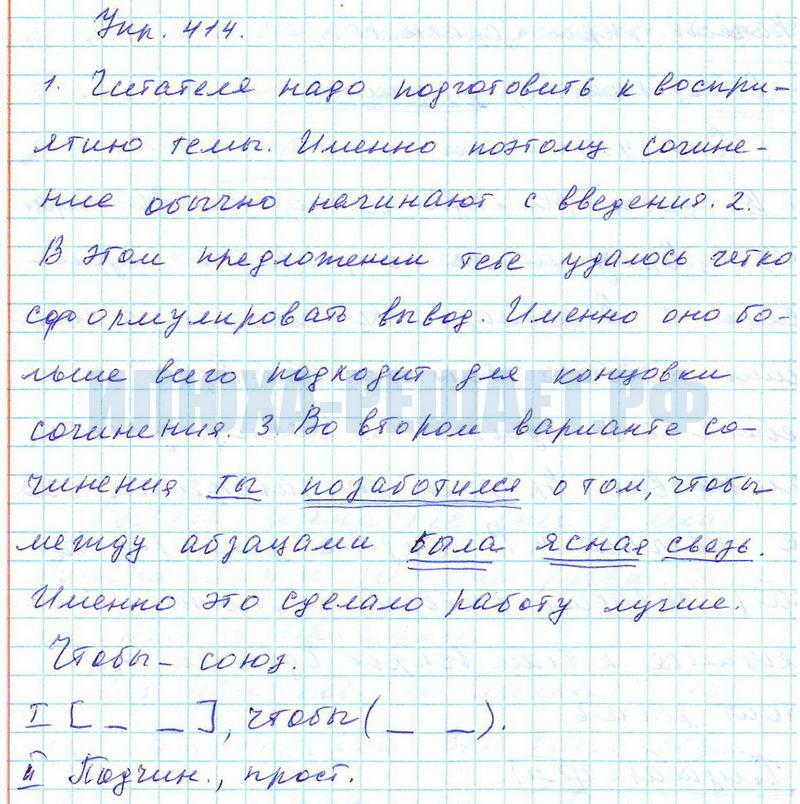 Упр. 414.
1. Читателя надо подготовить к воспри-
ятию темы. Именно поэтому сочине-
ние обычно начинают с введения. 2.
В этом предложении тебе удалось четко
сформулировать вывод. Именно оно бо-
льше всего подходит для концовки
ИЛЮХА-РЕШАЕТ.РФ
сочинения. 3. Во втором варианте со-
чинения ты позаботился о том, чтобы
между абзацами была ясная связь.
Именно это сделало работу лучше.
Чтобы – союз.
I [ _ _ ], чтобы ( _ _ ).
II Подчин., прост.